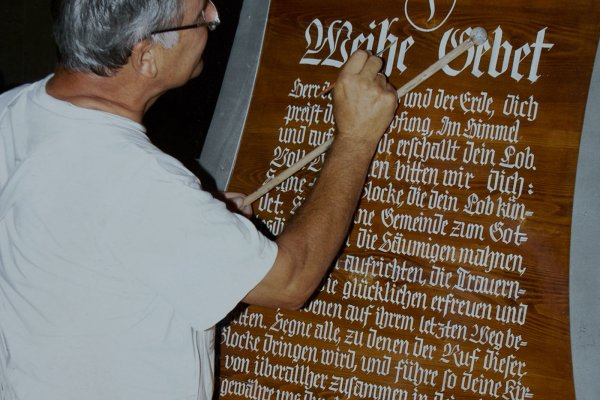 Weihe Gebet
Herr und der Erde, dich
preist Im Himmel
und auf erschallt dein Lob.
bitten wir dich:
Segne locke, die dein Lob kün-
det. Gemeinde zum Got-
die Säumigen mahnen,
aufrichten, die Trauern-
die glücklichen erfreuen und
denen auf ihrem letzten Weg be-
Segne alle, zu denen der Ruf dieser
Glocke dringen wird, und führe so deine Kir-
von überallher zusammen in
gewähre uns